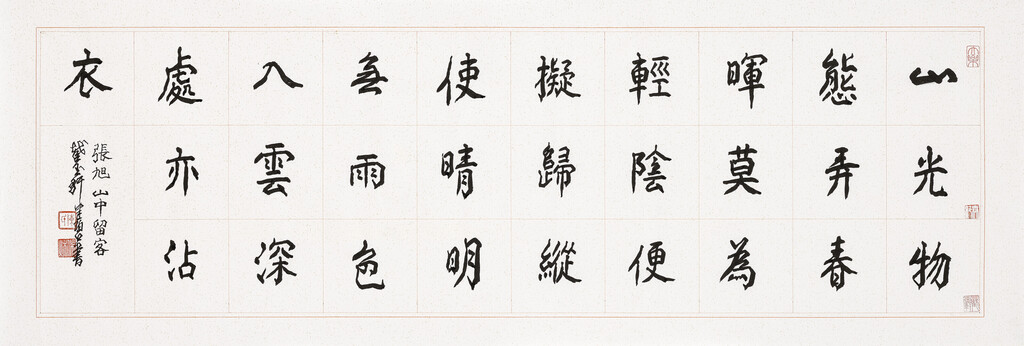 山光物
態弄春
暉莫為
輕陰便
擬歸縱
使晴明
無雨色
入雲深
處亦沾
衣
張旭山中留客